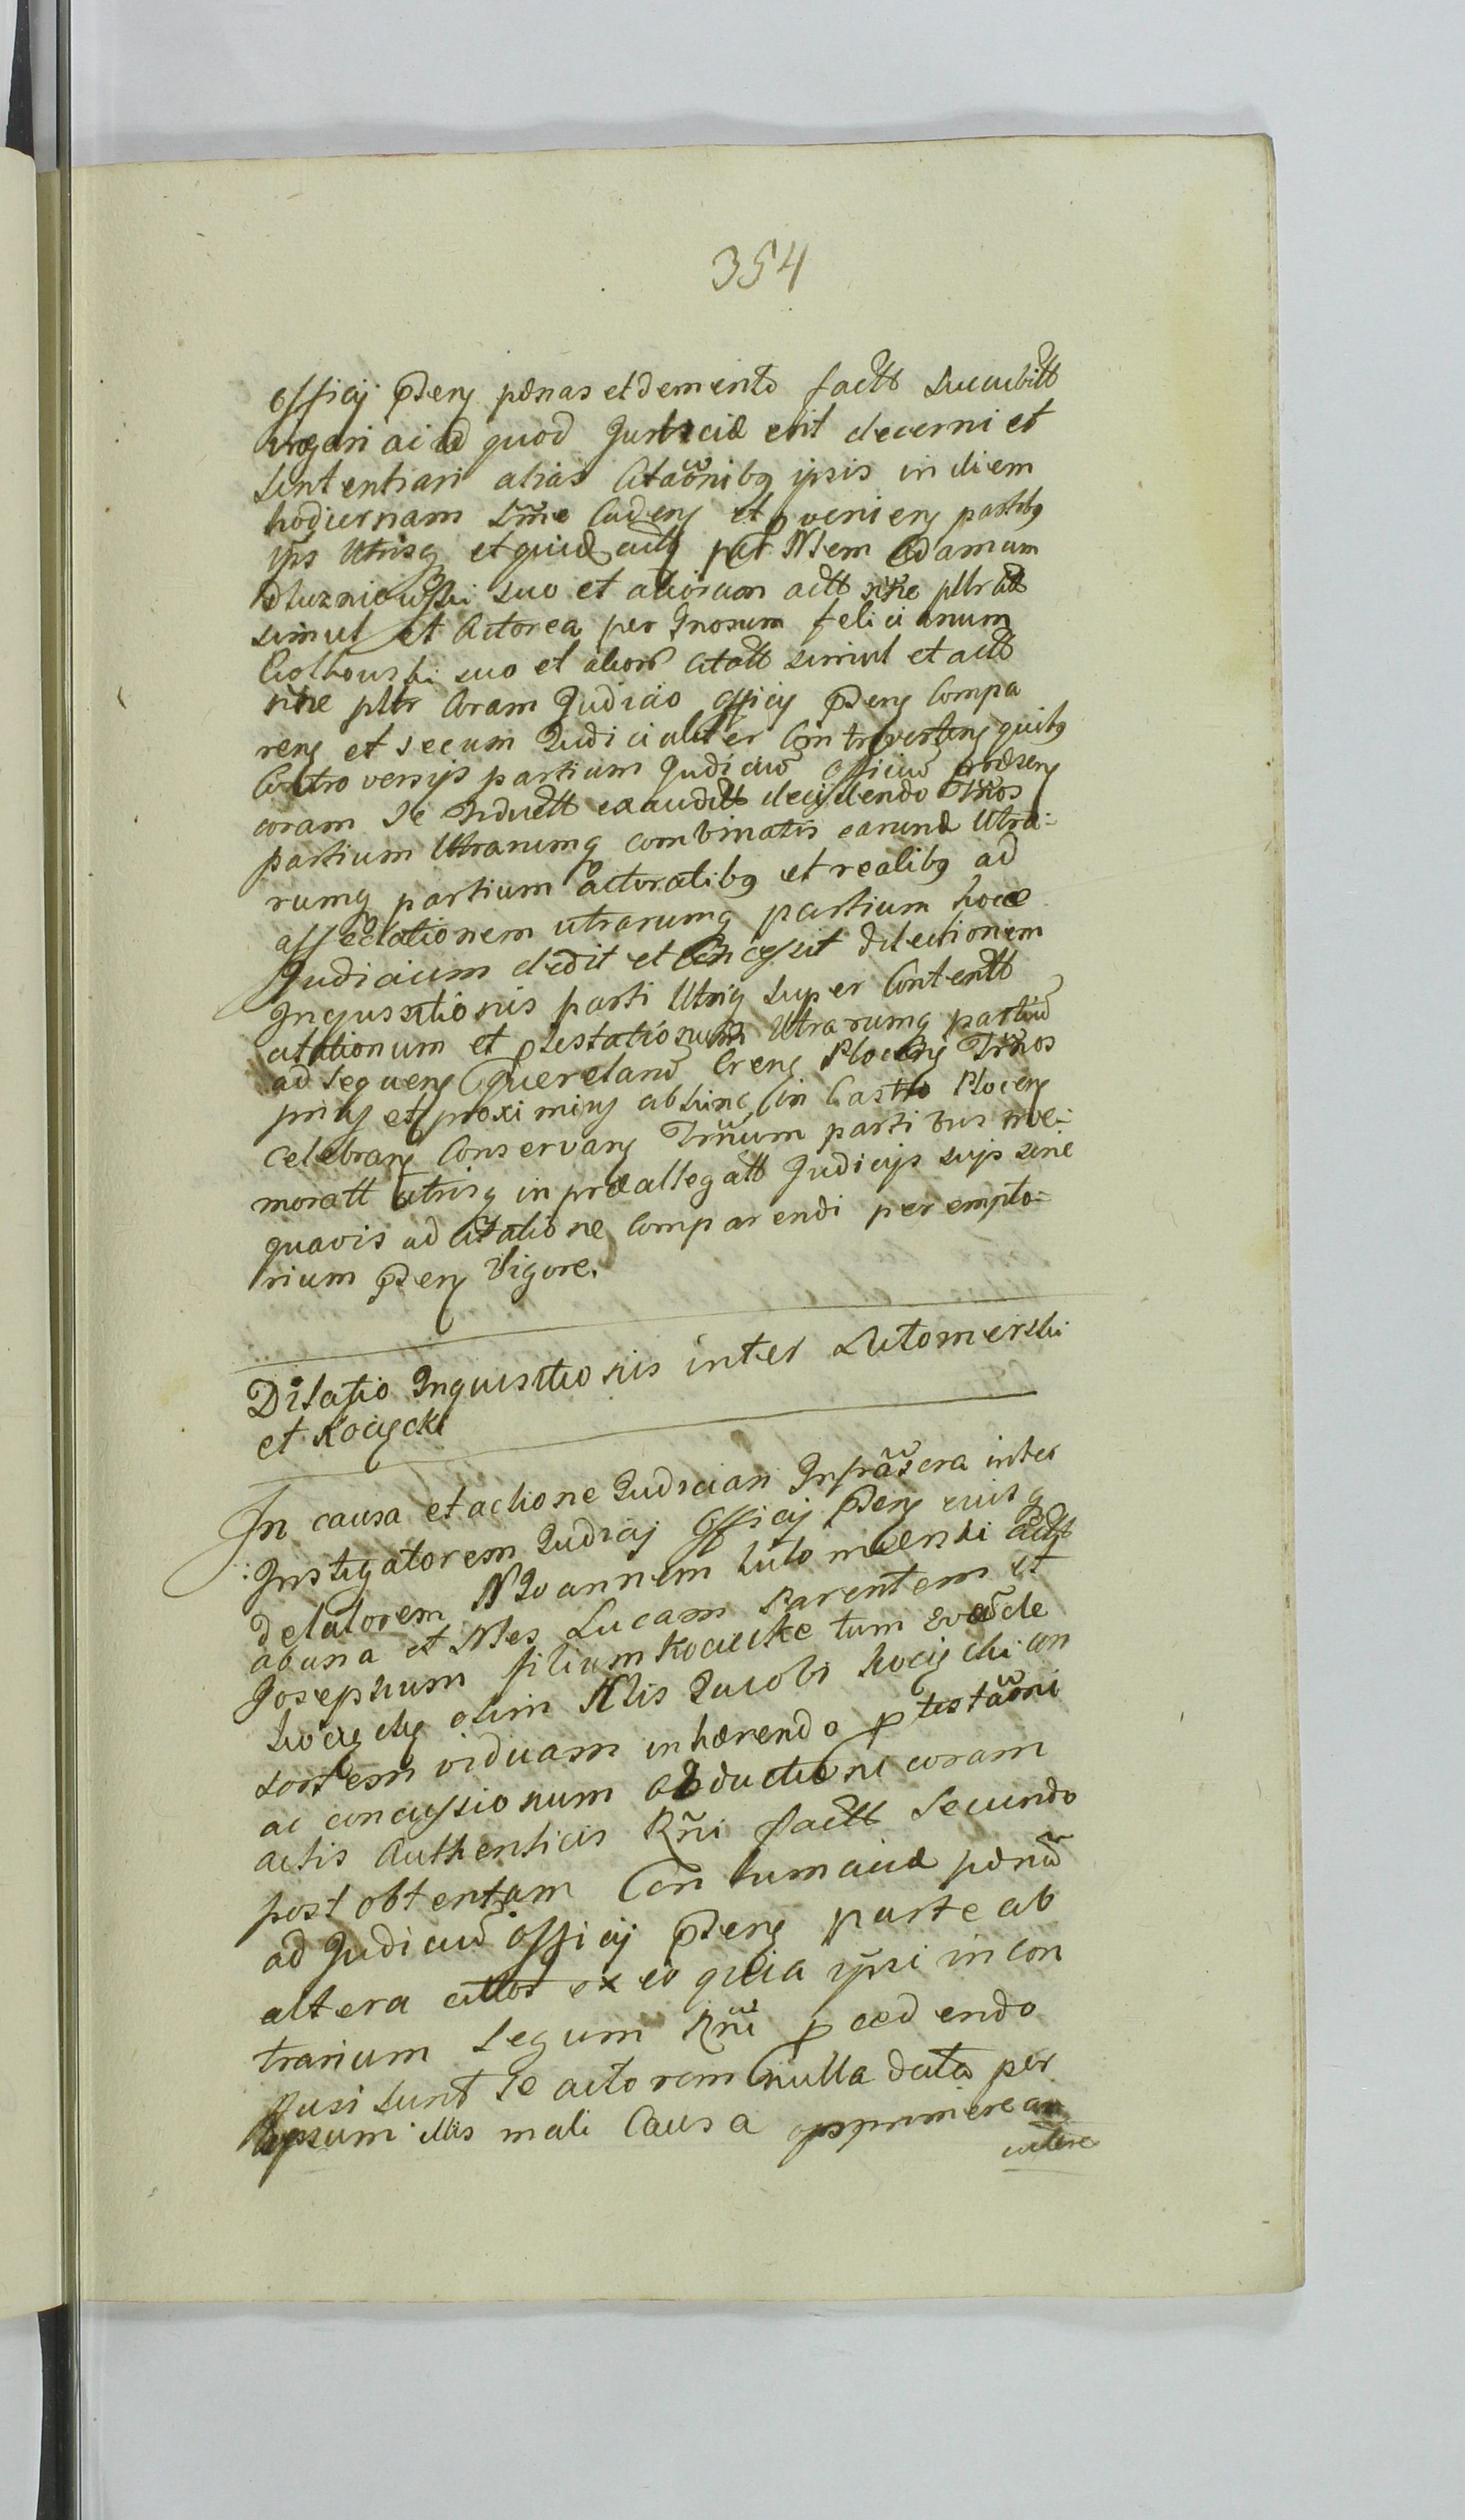 354
officij Psens pænas et demerito factt succubitt
irrogari ac id quod Justitiæ erit decerni et
sententiari alias Citaõnibq ipsis in diem
hodiernam Tme Cadens et pveniens partibq
ips Utrisq et quidem actq per Nlem Adamum
Dłuzniewski suo et aliorum actt nõe pltr att
simul et Actorea per Gnosum felicianum
Ciołkowski suo et alior citatt simul et actt
nõe pltr Coram Judicio officij Psens Compa
rens et secum Judicialiter Controvertens quibq
Controversijs partium Judiciũ officiũ præsens
coram se Inductt exauditt decidendo Trños
partium Utrarumq combinatis earund Utra:
rumq partium actoralibq et realibq ad
affectationem utrarumq partium hocce
Judicium dedit et Concessit dilationem
Inquisitionis parti Utriq super Contentt
citationum et ptestationum Utrarumq partiũ
ad sequens Querelarũ Crens Plocens Trños
pritq et proximius abhinc in Castro Plocens
celebrans Conservans Trñum partibus me:
moratt utrisq in præallegatt Judicijs suis sine
quavis adcitatione comparendi perempto:
rium Psens Vigore.
Dilatio Inquisitionis inter Lutomerski
et Kocięcki
In causa et actione Judiciari Infrascra inter
Instigatorem Judicij officij Psens eiusq
delatorem N Joannem Lutomierski actt
ab una et Nles Lucam Parentem et
Josephum filium Kocieckie tum
Kocięcky olim Nlis Jacobi Kocięcki con
sortem viduam inhærendo ptestaõni
ac concussionum obductioni coram
actis Authenticis Rñi factt Secundo
post obtentam Contumaciæ pænã
ad Judiciũ officij Psens parte ab
altera cittos ex eo quia ipsi in con
trarium Legum Rñi pcedendo
ausi sunt se actorem nulla data per
ipsum illis mali Causa opprimere an